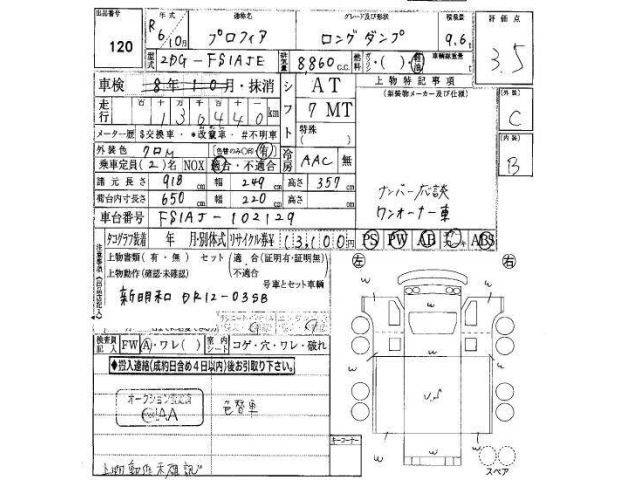 出品番号
120
年式
R6/10月
通称名
プロフィア
グレード及び形状
ロングダンプ
積載量
9.6t
評価点
3.5
型式
2DG-FS1AJE
排気量
8,860 C.C.
燃料
ガソリン・( )・軽油
車輌総重量
車検
8年10月・抹消
シフト
AT
7 MT
特殊
( )
上物特記事項
(架装物メーカー及び仕様)
(外装)
C
(内装)
B
走行
百 十 万 千 百 十
1 3 6 4 4 0 km
メーター歴 $交換車・*改竄車・#不明車
外装色
クロM
色替のみ○印
(有)
乗車定員(2)名 NOX 適合・不適合
冷房
AAC 無
諸元長さ 918 cm 幅 249 cm 高さ 357 cm
荷台内寸長さ 650 cm 幅 220 cm 高さ cm
ナンバー応談
ワンオーナー車
車台番号
FS1AJ-102129
タコグラフ装着 年 月・別体式 リサイクル券¥ 13,100 円
PS PW AB ABS
注意事項(出品店記入)
上物書類(有・無) セット(適合(証明有・証明無)
上物動作(確認・未確認) 不適合
号車とセット車輌
新明和 DR12-03SB
検査員記入
FW A・ワレ( )
室内シート
コゲ・穴・ワレ・破れ
◆搬入連絡(成約日含め4日以内)後お引取り下さい。
色替車
上物動作未確認
キーコーナー
左
右
w
w
w
w
w
w
w
w
スペア